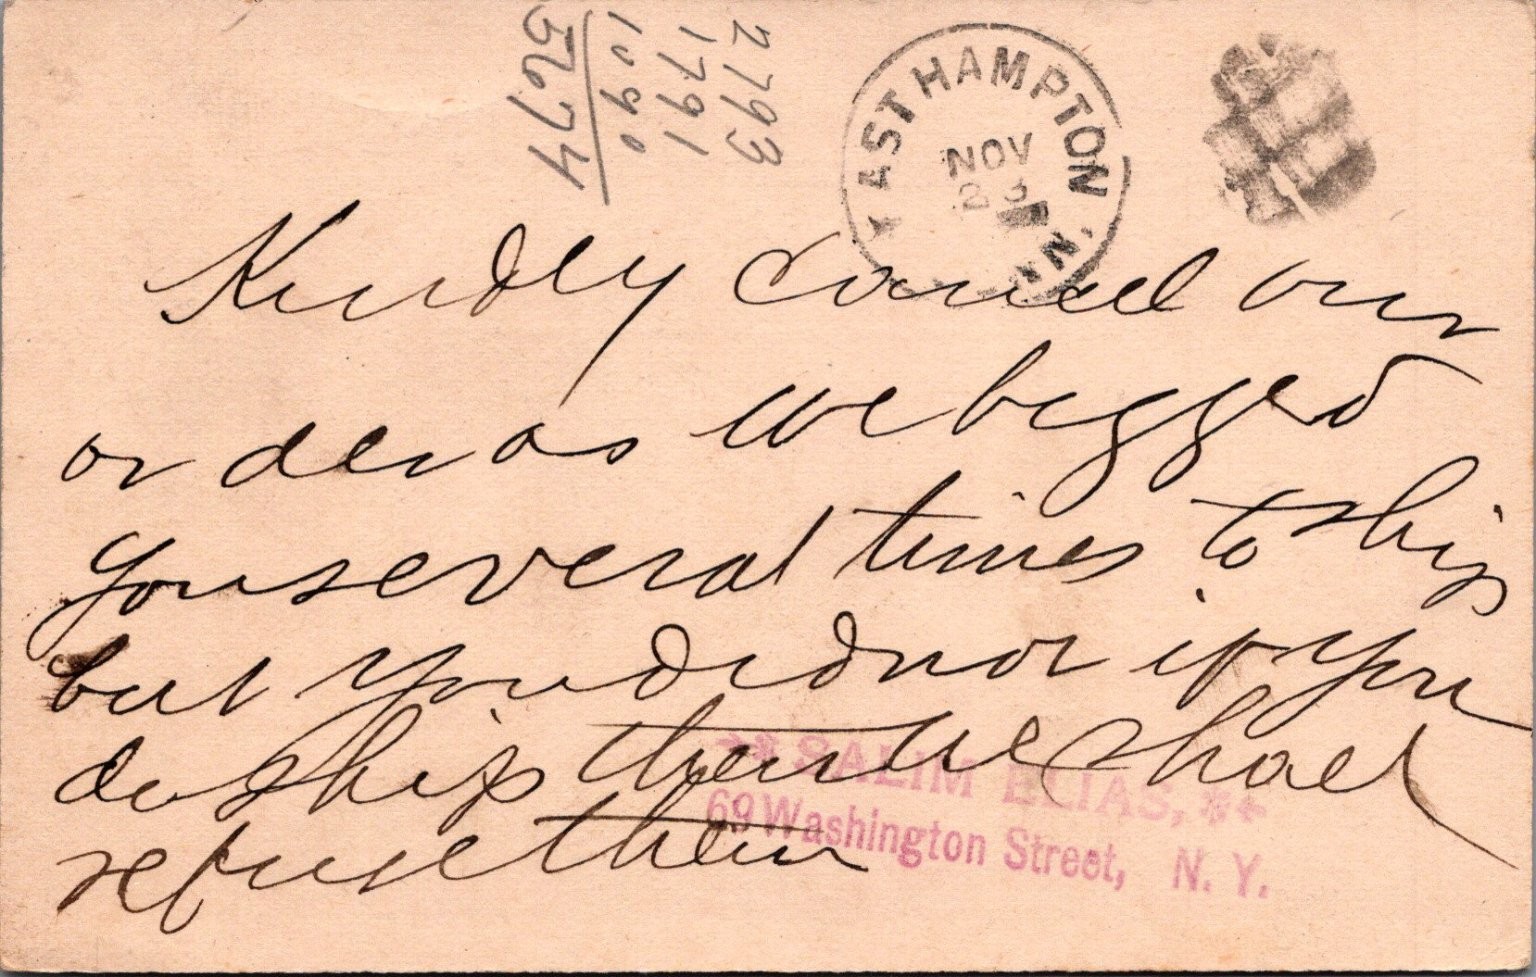 2793
1791
1090
5674
EAST HAMPTON
NOV
23
Kindly cancel our
orders as we begged
you several times to ship
but you did not if you
do ship them we shall
refuse them
SALIM ELIAS,
69 Washington Street, N. Y.